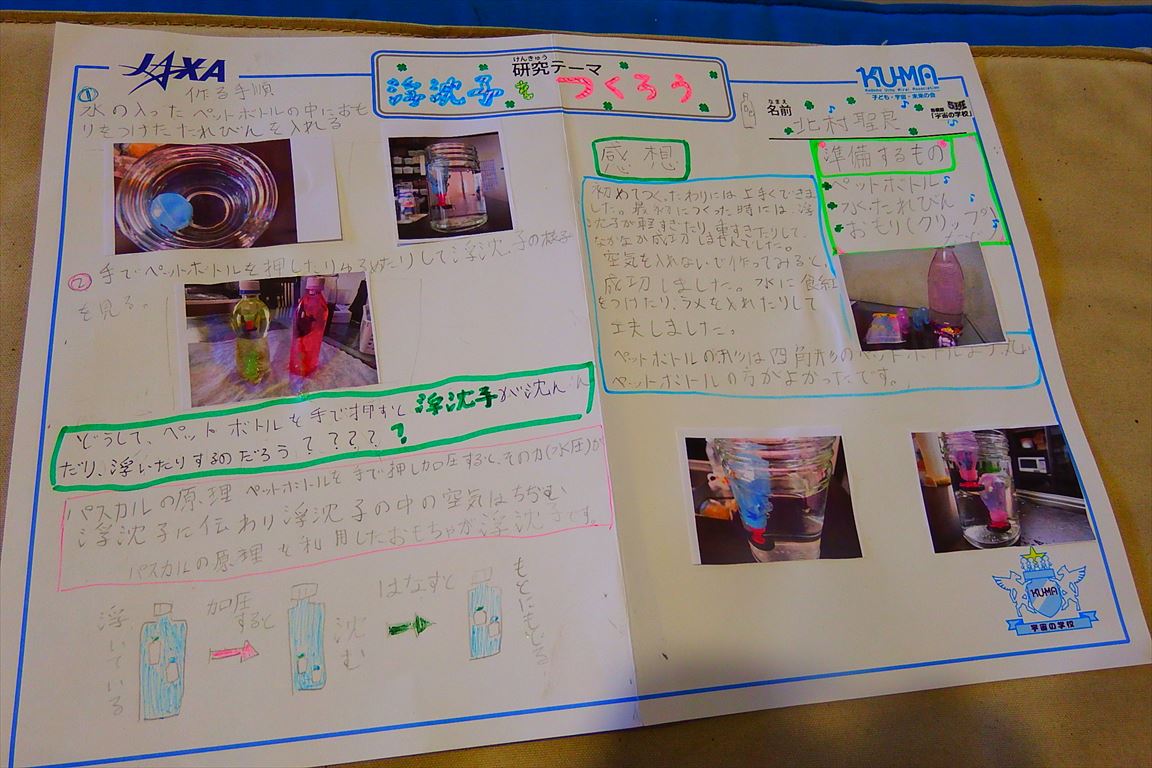 JAXA
けんきゅう
研究テーマ
浮沈子をつくろう
KU-MA
Kodomo Uchu Mirai Association
子ども・宇宙・未来の会
「宇宙の学校」
なまえ
名前
北村聖良
① 作る手順
水の入ったペットボトルの中におも
りをつけたたれびんを入れる
② 手でペットボトルを押したりゆるめたりして浮沈子の様子
を見る。
どうして、ペットボトルを手で押すと浮沈子が沈ん
だり、浮いたりするのだろう????
パスカルの原理 ペットボトルを手で押し加圧すると、その力(水圧)が
浮沈子に伝わり浮沈子の中の空気はちぢむ
パスカルの原理を利用したおもちゃが浮沈子です。
浮いている
加圧
すると
沈む
はなすと
もとにもどる
感想
初めてつくったわりには上手くできま
した。最初につくった時には、浮
沈子が軽すぎたり、重すぎたりして、
なかなか成功しませんでした。
空気を入れないで作ってみると、
成功しました。水に食紅
をつけたり、ラメを入れたりして
工夫しました。
ペットボトルの形は四角形のペットボトルより丸い
ペットボトルの方がよかったです。
準備するもの
ペットボトル
水、たれびん
おもり(クリップ)
KU-MA
宇宙の学校